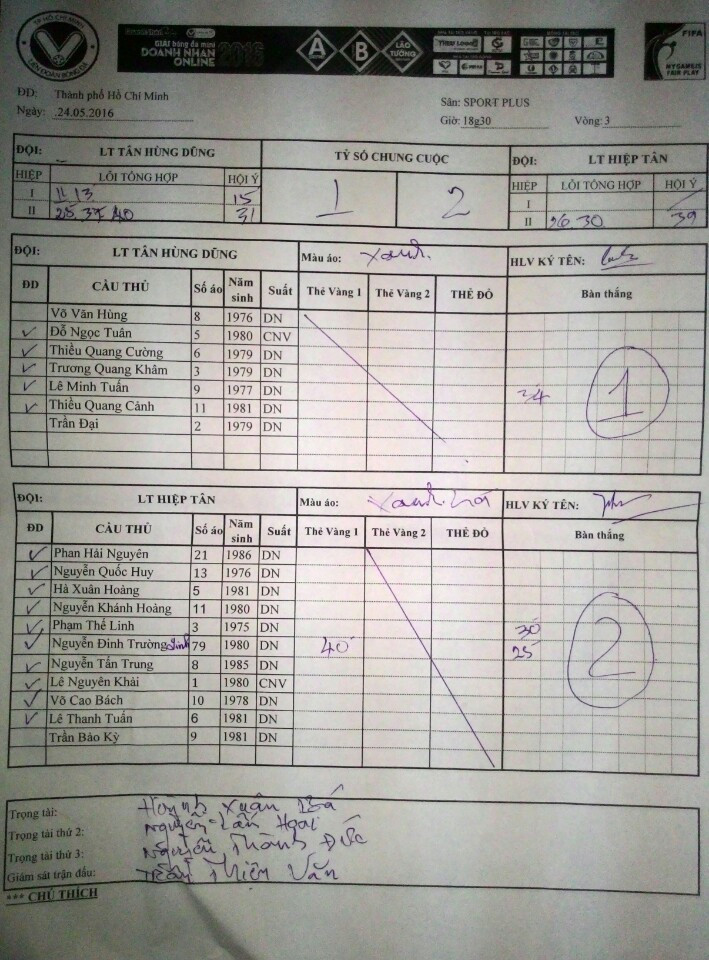 TP HỒ CHÍ MINH
LIÊN ĐOÀN BÓNG ĐÁ
GIẢI bóng đá mini
DOANH NHÂN
ONLINE 2016
A B LÃO TƯỚNG
FIFA
MY GAME IS
FAIR PLAY
ĐĐ: Thành phố Hồ Chí Minh
Sân: SPORT PLUS
Ngày: .24.05.2016
Giờ: 18g30 Vòng: 3
ĐỘI: LT TÂN HÙNG DŨNG TỶ SỐ CHUNG CUỘC ĐỘI: LT HIỆP TÂN
HIỆP LỖI TỔNG HỢP HỘI Ý 1 2 HIỆP LỖI TỔNG HỢP HỘI Ý
I 11 13 15 I
II 25. 37 40 31 II 26 30 39
ĐỘI: LT TÂN HÙNG DŨNG Màu áo: Xanh. HLV KÝ TÊN:
ĐD CẦU THỦ Số áo Năm sinh Suất Thẻ Vàng 1 Thẻ Vàng 2 THẺ ĐỎ Bàn thắng
Võ Văn Hùng 8 1976 DN
✓ Đỗ Ngọc Tuấn 5 1980 CNV
✓ Thiều Quang Cường 6 1979 DN
✓ Trương Quang Khâm 3 1979 DN
✓ Lê Minh Tuấn 9 1977 DN 24 1
✓ Thiều Quang Cảnh 11 1981 DN
Trần Đại 2 1979 DN
ĐỘI: LT HIỆP TÂN Màu áo: Xanh lá HLV KÝ TÊN:
ĐD CẦU THỦ Số áo Năm sinh Suất Thẻ Vàng 1 Thẻ Vàng 2 THẺ ĐỎ Bàn thắng
✓ Phan Hải Nguyên 21 1986 DN
✓ Nguyễn Quốc Huy 13 1976 DN
✓ Hà Xuân Hoàng 5 1981 DN
✓ Nguyễn Khánh Hoàng 11 1980 DN
✓ Phạm Thế Linh 3 1975 DN 30 2
✓ Nguyễn Đình Trường Linh 79 1980 DN 40 25
✓ Nguyễn Tấn Trung 8 1985 DN
✓ Lê Nguyên Khải 1 1980 CNV
✓ Võ Cao Bách 10 1978 DN
✓ Lê Thanh Tuấn 6 1981 DN
Trần Bảo Kỳ 9 1981 DN
Trọng tài: Huỳnh Xuân Bá
Trọng tài thứ 2: Nguyễn Tấn
Trọng tài thứ 3: Nguyễn Thành Đức
Giám sát trận đấu: Trần Thiện Văn
*** CHÚ THÍCH